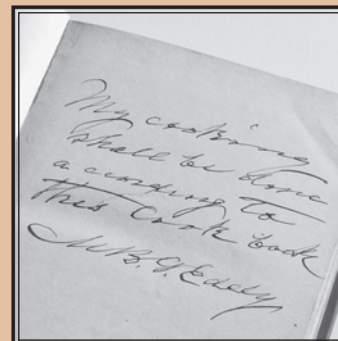 My cooking
shall be done
according to
this Cook book
M.B.G. Eddy